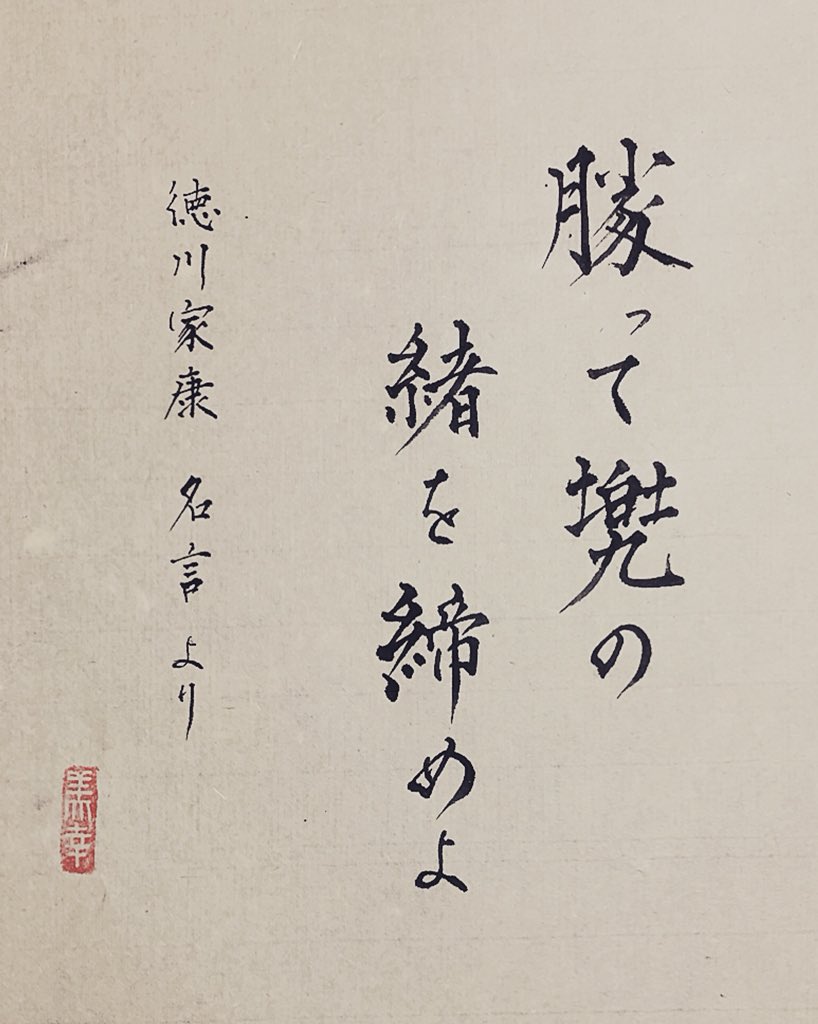 勝って兜の
緒を締めよ
徳川家康 名言より
美幸